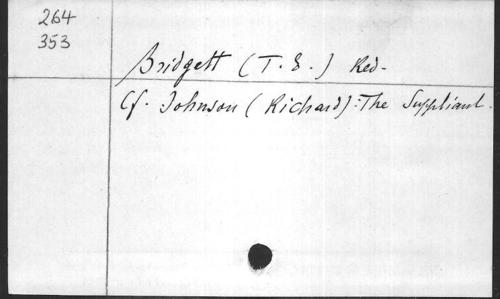 264
353
Bridgett (T. E.) Red.
Cf. Johnson (Richard): The Suppliant.